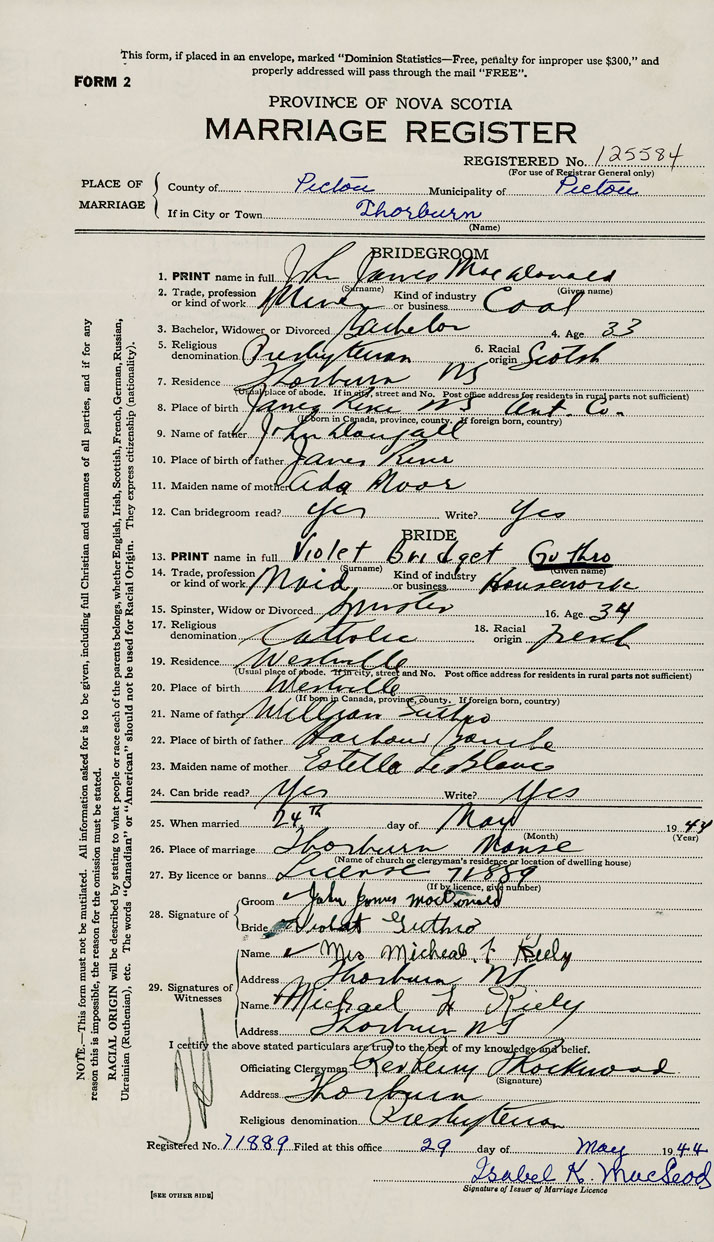 This form, if placed in an envelope, marked "Dominion Statistics—Free, penalty for improper use $300," and
properly addressed will pass through the mail "FREE".
FORM 2
PROVINCE OF NOVA SCOTIA
MARRIAGE REGISTER
REGISTERED No. 125584
(For use of Registrar General only)
PLACE OF MARRIAGE
County of Pictou Municipality of Pictou
If in City or Town Thorburn
(Name)
BRIDEGROOM
1. PRINT name in full John James MacDonald
(Surname) (Given name)
2. Trade, profession or kind of work Miner Kind of industry or business Coal
3. Bachelor, Widower or Divorced Bachelor 4. Age 33
5. Religious denomination Presbyterian 6. Racial origin Scotch
7. Residence Thorburn NS
(Usual place of abode. If in city, street and No. Post office address for residents in rural parts not sufficient)
8. Place of birth James River NS Ant Co.
(If born in Canada, province, county. If foreign born, country)
9. Name of father John Dougall
10. Place of birth of father James River
11. Maiden name of mother Ada Moor
12. Can bridegroom read? Yes Write? Yes
BRIDE
13. PRINT name in full Violet Bridget Guthro
(Surname) (Given name)
14. Trade, profession or kind of work Maid Kind of industry or business Housework
15. Spinster, Widow or Divorced Spinster 16. Age 34
17. Religious denomination Catholic 18. Racial origin French
19. Residence Westville
(Usual place of abode. If in city, street and No. Post office address for residents in rural parts not sufficient)
20. Place of birth Westville
(If born in Canada, province, county. If foreign born, country)
21. Name of father William Guthro
22. Place of birth of father Harbour Bouche
23. Maiden name of mother Estella LeBlanc
24. Can bride read? Yes Write? Yes
25. When married 24th day of May 1944
(Month) (Year)
26. Place of marriage Thorburn Manse
(Name of church or clergyman's residence or location of dwelling house)
27. By licence or banns License 71889
(If by licence, give number)
28. Signature of
Groom John James MacDonald
Bride Violet Guthro
29. Signatures of Witnesses
Name Mrs Micheal F Kiely
Address Thorburn NS
Name Michael F Kiely
Address Thorburn NS
I certify the above stated particulars are true to the best of my knowledge and belief.
Officiating Clergyman Rev
(Signature)
Address Thorburn
Religious denomination Presbyterian
Registered No. 71889 Filed at this office 29 day of May 1944
Isabel K. MacLeod
Signature of Issuer of Marriage Licence
[SEE OTHER SIDE]
NOTE.—This form must not be mutilated. All information asked for is to be given, including full Christian and surnames of all parties, and if for any
reason this is impossible, the reason for the omission must be stated.
RACIAL ORIGIN will be described by stating to what people or race each of the parents belongs, whether English, Irish, Scottish, French, German, Russian,
Ukrainian (Ruthenian), etc. The words "Canadian" or "American" should not be used for Racial Origin. They express citizenship (nationality).